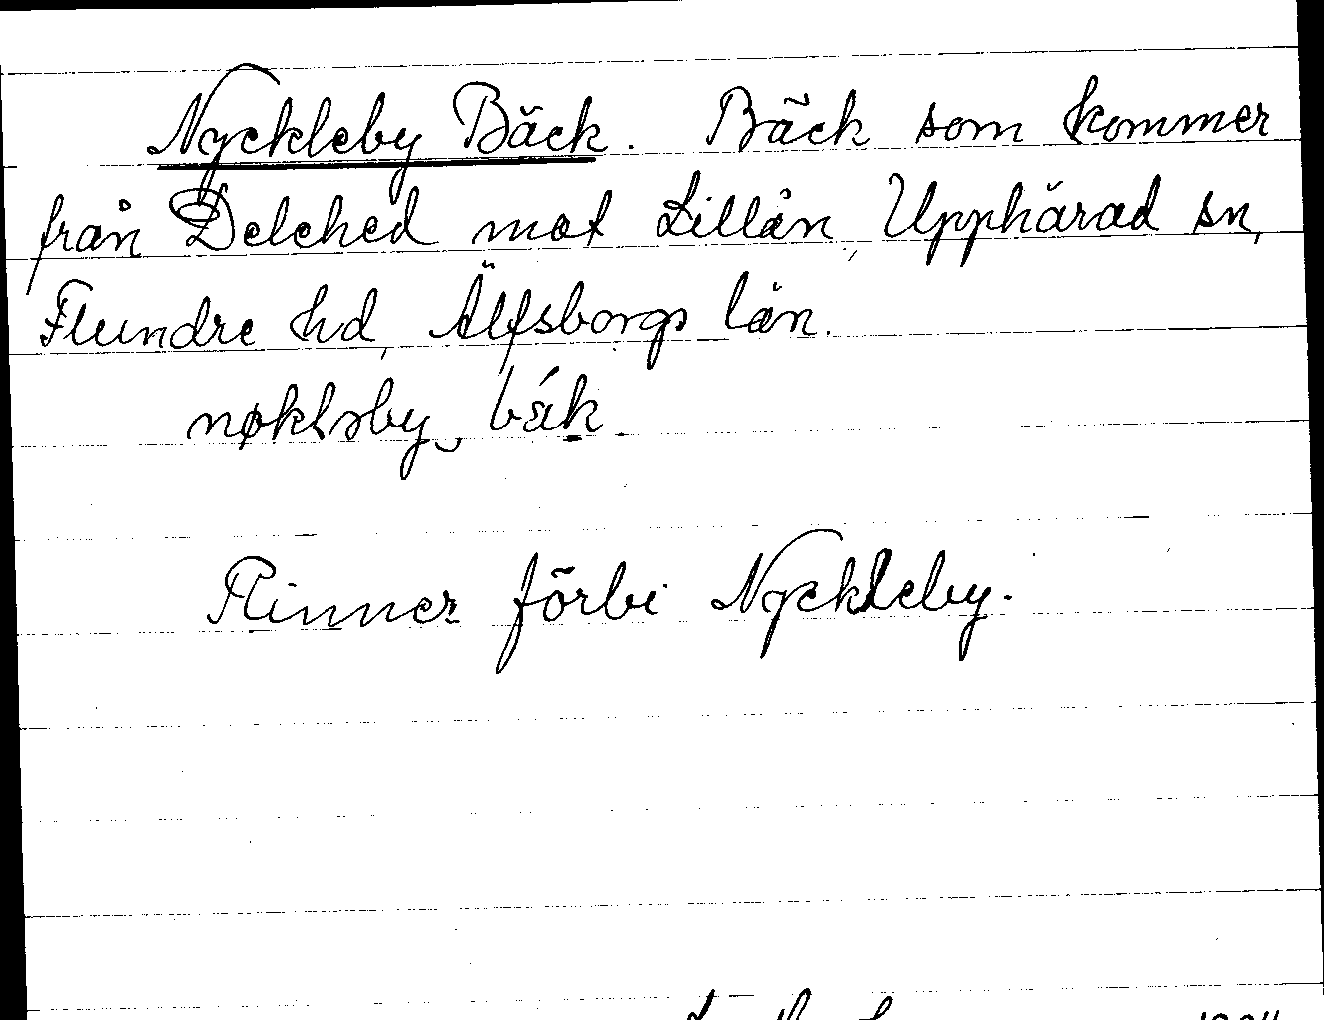 Nyckleby Bäck. Bäck som kommer
från Delehed mot Lillån, Upphärad sn,
Flundre hd, Älfsborgs län.
Rinner förbi Nyckleby.